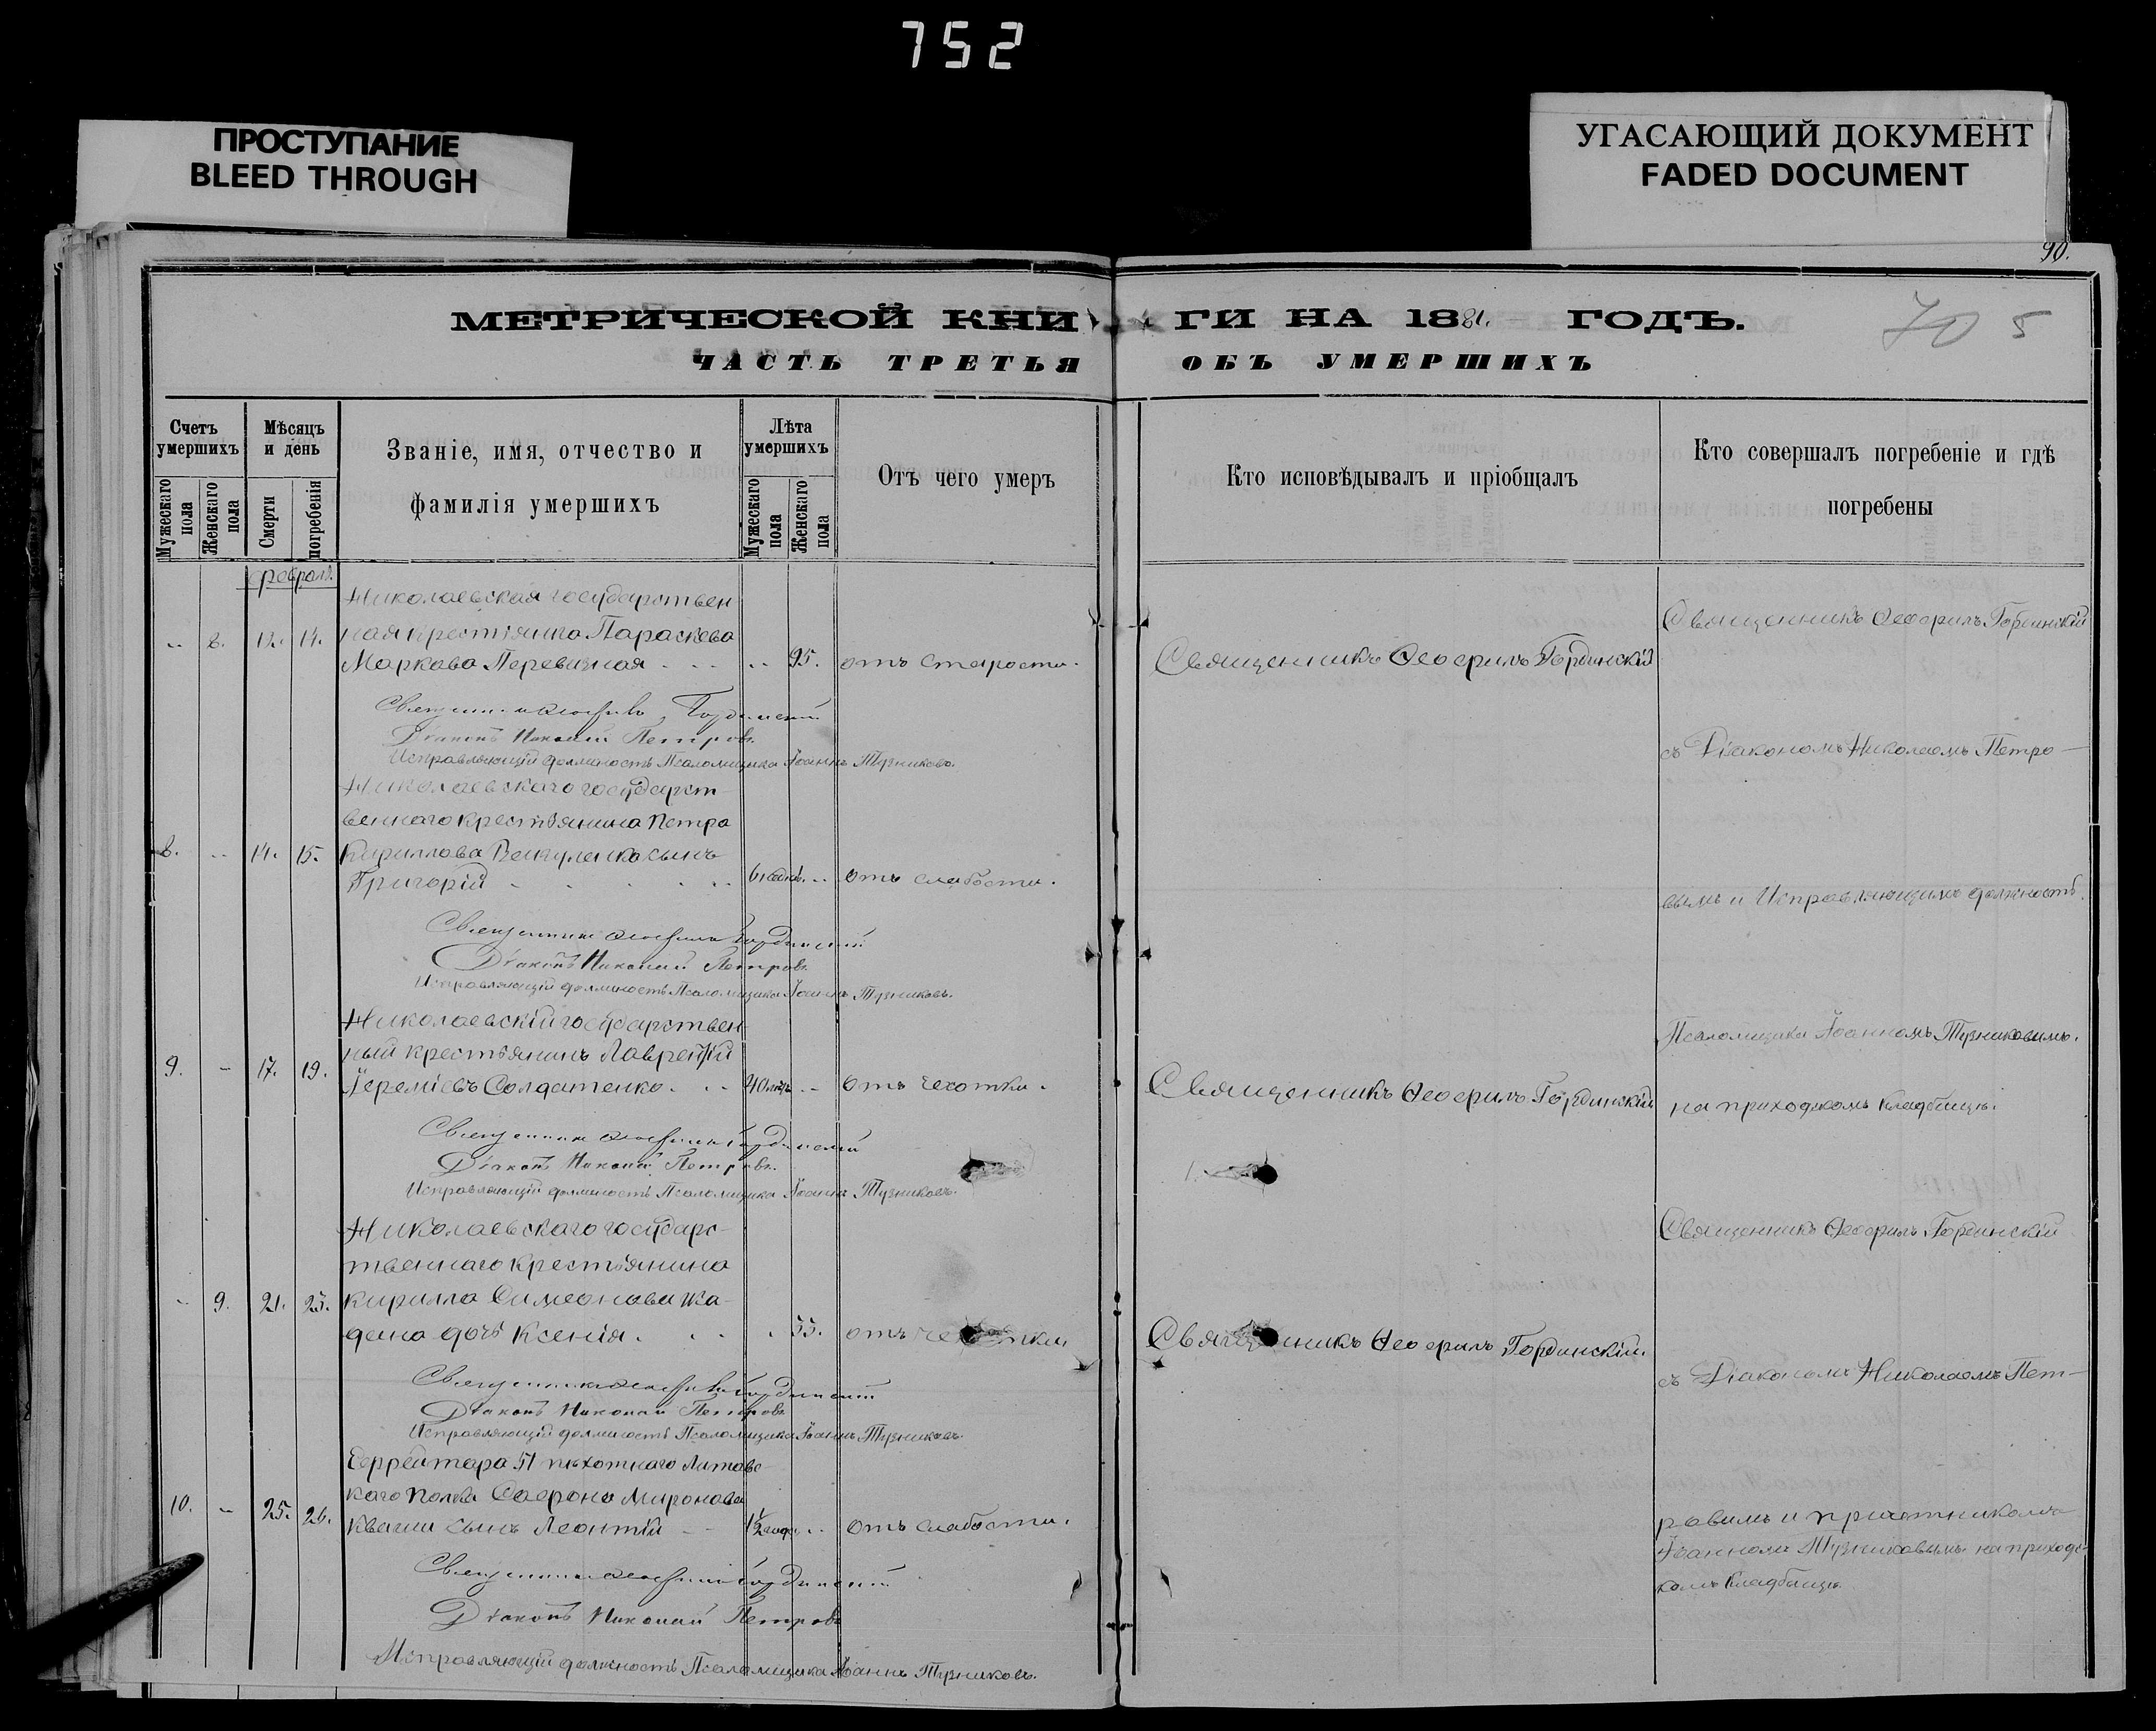 752
ПРОСТУПАНИЕ
BLEED THROUGH
УГАСАЮЩИЙ ДОКУМЕНТ
FADED DOCUMENT
90.
МЕТРИЧЕСКОЙ КНИГИ НА 1881. ГОДЪ.
70 5
ЧАСТЬ ТРЕТЬЯ ОБЪ УМЕРШИХЪ
Счетъ умершихъ
Мужескаго пола
Женскаго пола
Мѣсяцъ и день
Смерти
погребенія
Званіе, имя, отчество и
фамилія умершихъ
Лѣта умершихъ
Мужескаго пола
Женскаго пола
Отъ чего умеръ
Кто исповѣдывалъ и пріобщалъ
Кто совершалъ погребеніе и гдѣ
погребены
Февраль
Николаевская государствен
8. 12. 14. ная крестьянка Параскева
Маркова Перевизная 95. отъ старости. Священникъ Ѳеофилъ Гординскій
Священникъ Ѳеофилъ Гординскій
Діаконъ Николай Петровъ
Исправляющій должность Псаломщика Іоаннъ Тузниковъ.
Николаевскаго государст
веннаго крестьянина Петра
8. 14. 15. Кириллова сынъ
Григорій 6 недѣль отъ слабости.
Священникъ Ѳеофилъ Гординскій
Діаконъ Николай Петровъ
Исправляющій должность Псаломщика Іоаннъ Тузниковъ.
Николаевскій государствен
9. 17. 19. ный крестьянинъ Лаврентій
Іереміевъ Солдатенко 40 лѣтъ отъ чахотки. Священникъ Ѳеофилъ Гординскій
Священникъ Ѳеофилъ Гординскій
Діаконъ Николай Петровъ.
Исправляющій должность Псаломщика Іоаннъ Тузниковъ.
Николаевскаго государс-
твеннаго крестьянина
9. 21. 23. Кирилла Симеонова
дочь Ксенія. 55. отъ Священникъ Ѳеофилъ Гординскій.
Священникъ Ѳеофилъ Гординскій
Діаконъ Николай Петровъ
Исправляющій должность Псаломщика Іоаннъ Тузниковъ.
Ефрейтора 51 пѣхотнаго Литовс
каго полка Софрона Миронова
10. 25. 26. Квачи сынъ Леонтій 1½ года отъ слабости.
Священникъ Ѳеофилъ Гординскій
Діаконъ Николай Петровъ
Исправляющій должность Псаломщика Іоаннъ Тузниковъ.
Священникъ Ѳеофилъ Гординскій
съ Діакономъ Николаемъ Петро-
вымъ и Исправляющимъ должность
Псаломщика Іоанномъ Тузниковымъ.
на приходскомъ кладбищѣ.
Священникъ Ѳеофилъ Гординскій
съ Діакономъ Николаемъ Пет-
ровымъ и причетникомъ
Іоанномъ Тузниковымъ на приходс-
комъ кладбищѣ.